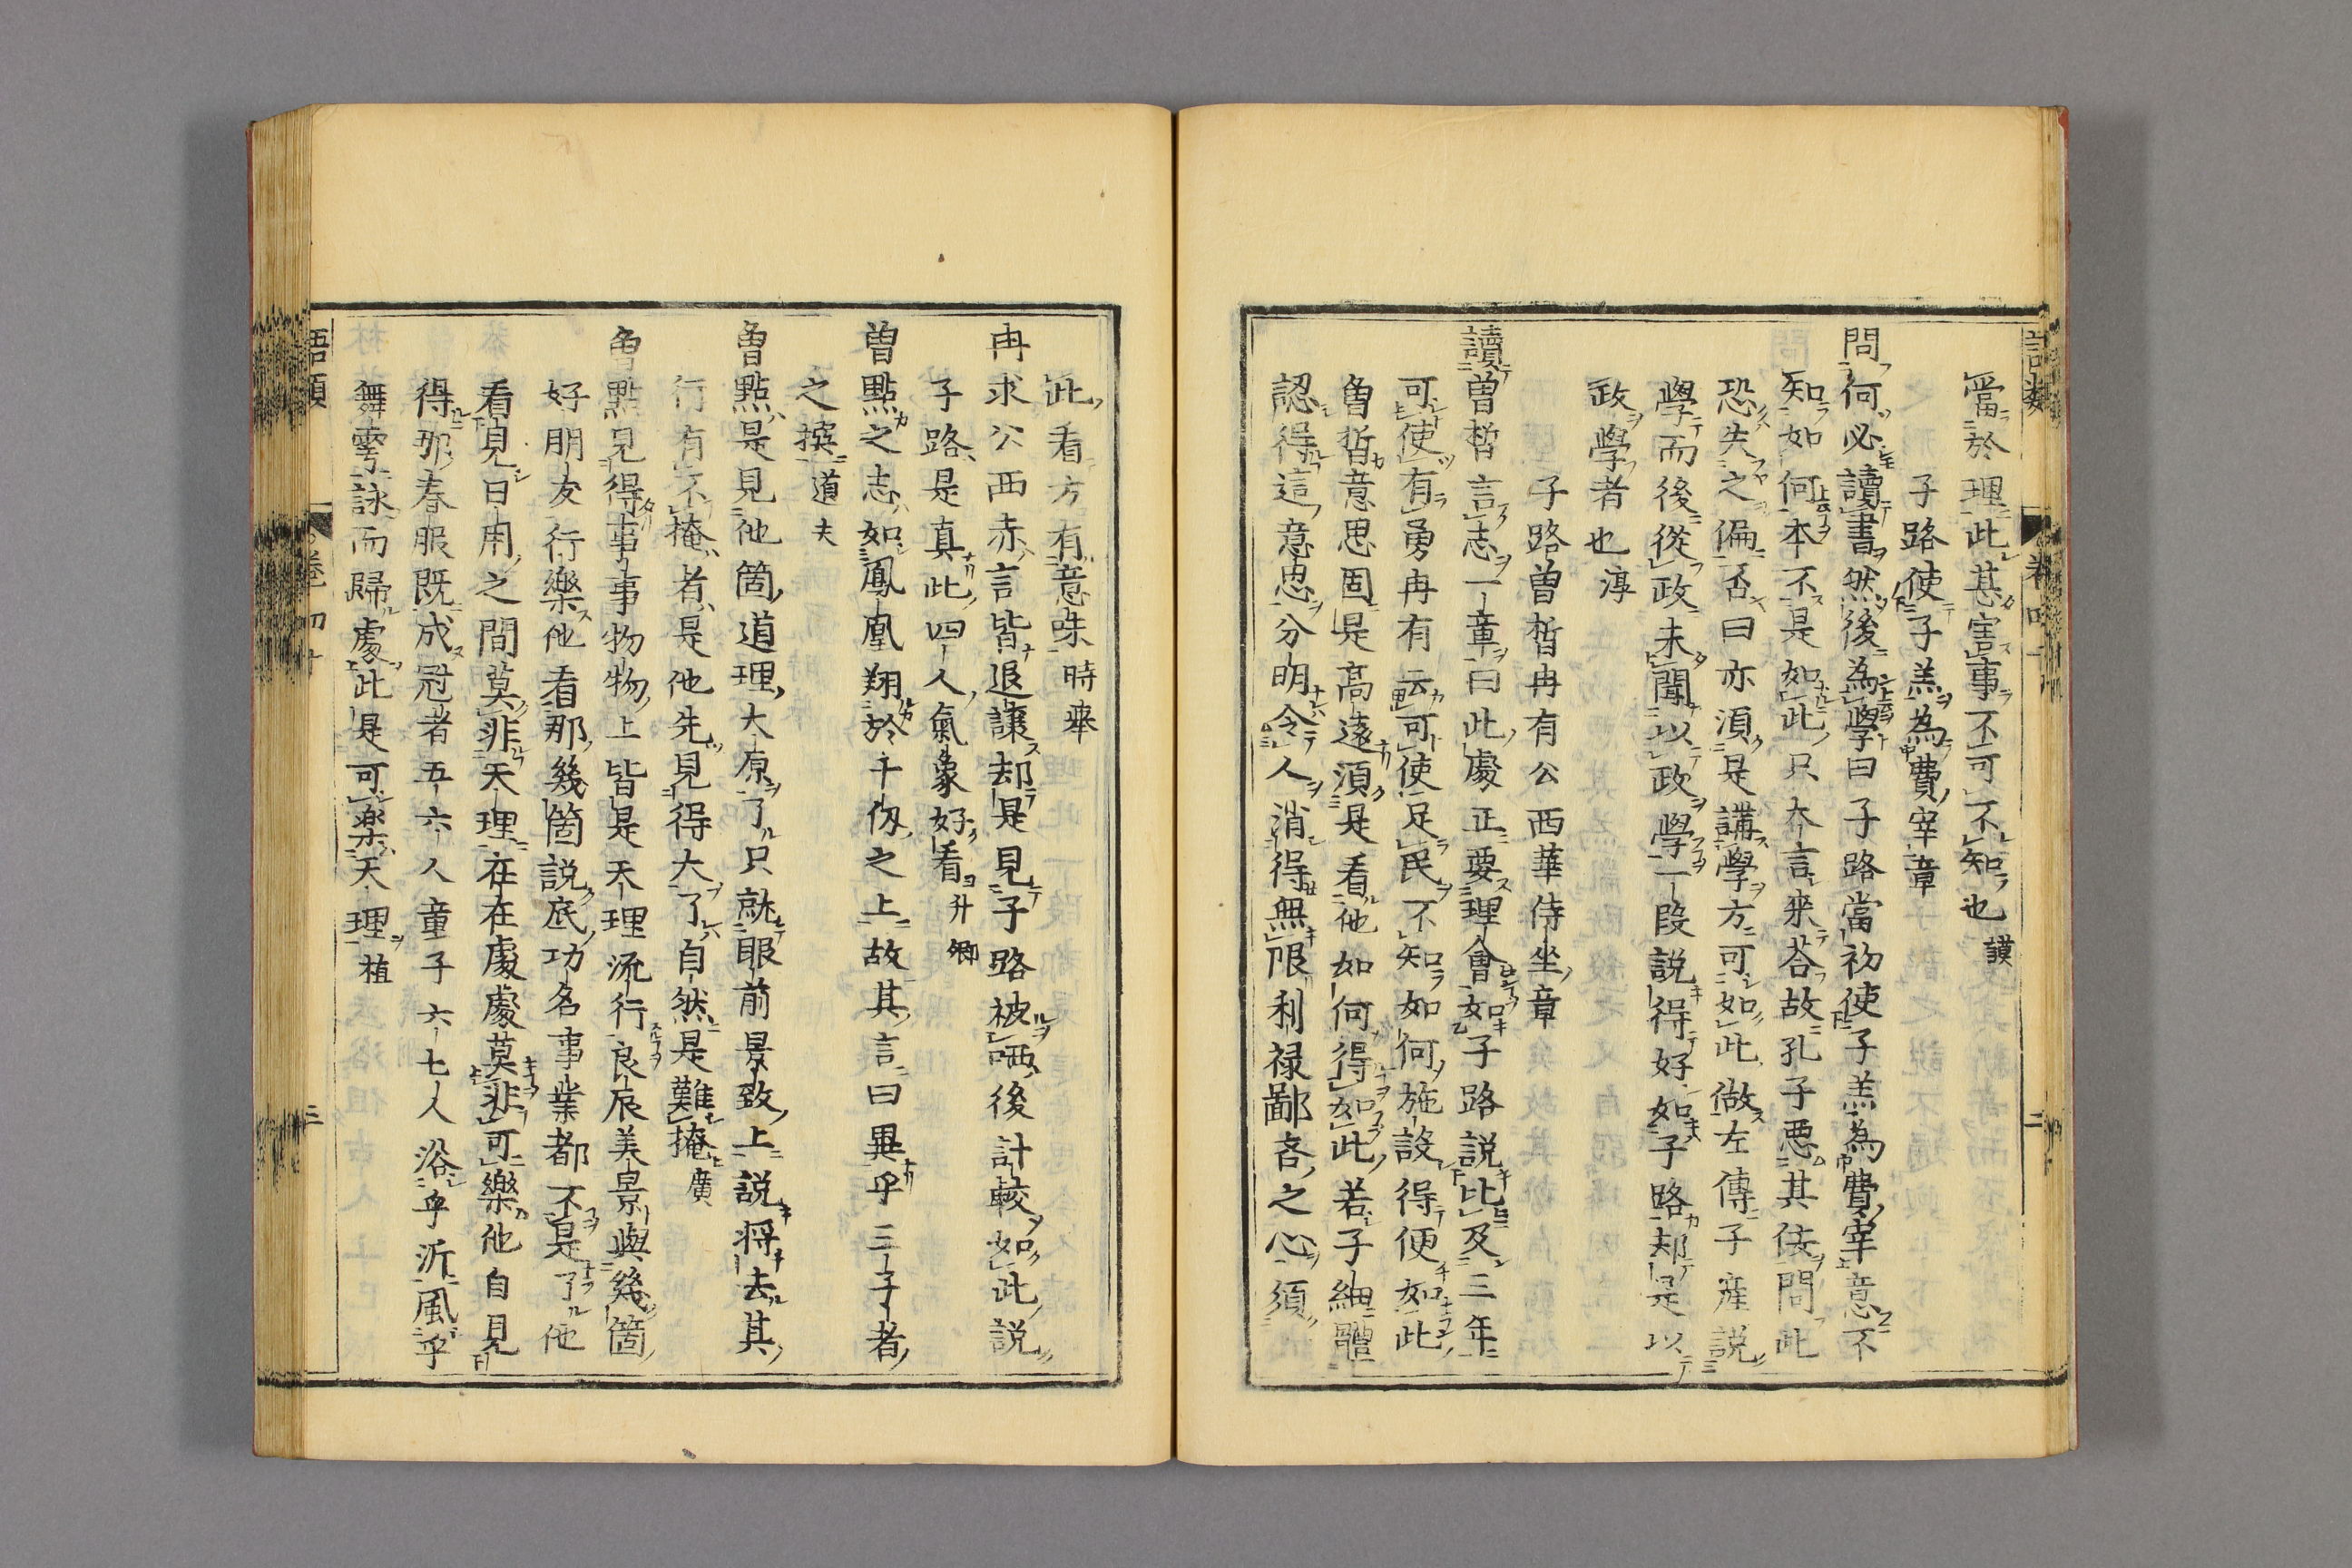 當於理此甚害事不可不知也謨
子路使子羔為費宰章
問何必讀書然後為學曰子路當初使子羔為費宰意不
知如何本不是如此只大言来荅故孔子悪其佞問此
恐失之偏否曰亦須是講學方可如此做左傳子産説
學而後從政未聞以政學一段説得好如子路却是以
政學者也淳
子路曽晳冉有公西華侍坐章
讀曽晳言志一章曰此處正要理會如子路説比及三年
可使有勇冉有云可使足民不知如何施設得便如此
曽晳意思固是髙遠須是看他如何得如此若子細體
認得這意思分明令人消得無限利禄鄙吝之心須
如此看方有意味時舉
冉求公西赤言皆退譲却是見子路被哂後計較如此説
子路是真此四人氣象好看升卿
曽點之志如鳳凰翔於千仭之上故其言曰異乎三子者
之撰道夫
曽點是見他箇道理大原了只就眼前景致上説将去其
行有不掩者是他先見得大了自然是難掩廣
曽點見得事事物物上皆是天理流行良辰美景與幾箇
好朋友行樂他看那幾箇説底功名事業都不是了他
看見日用之間莫非天理在在處處莫非可樂他自見
得那春服既成冠者五六人童子六七人浴乎沂風乎
舞雩詠而歸處此是可楽天理植
語類 卷四十 三